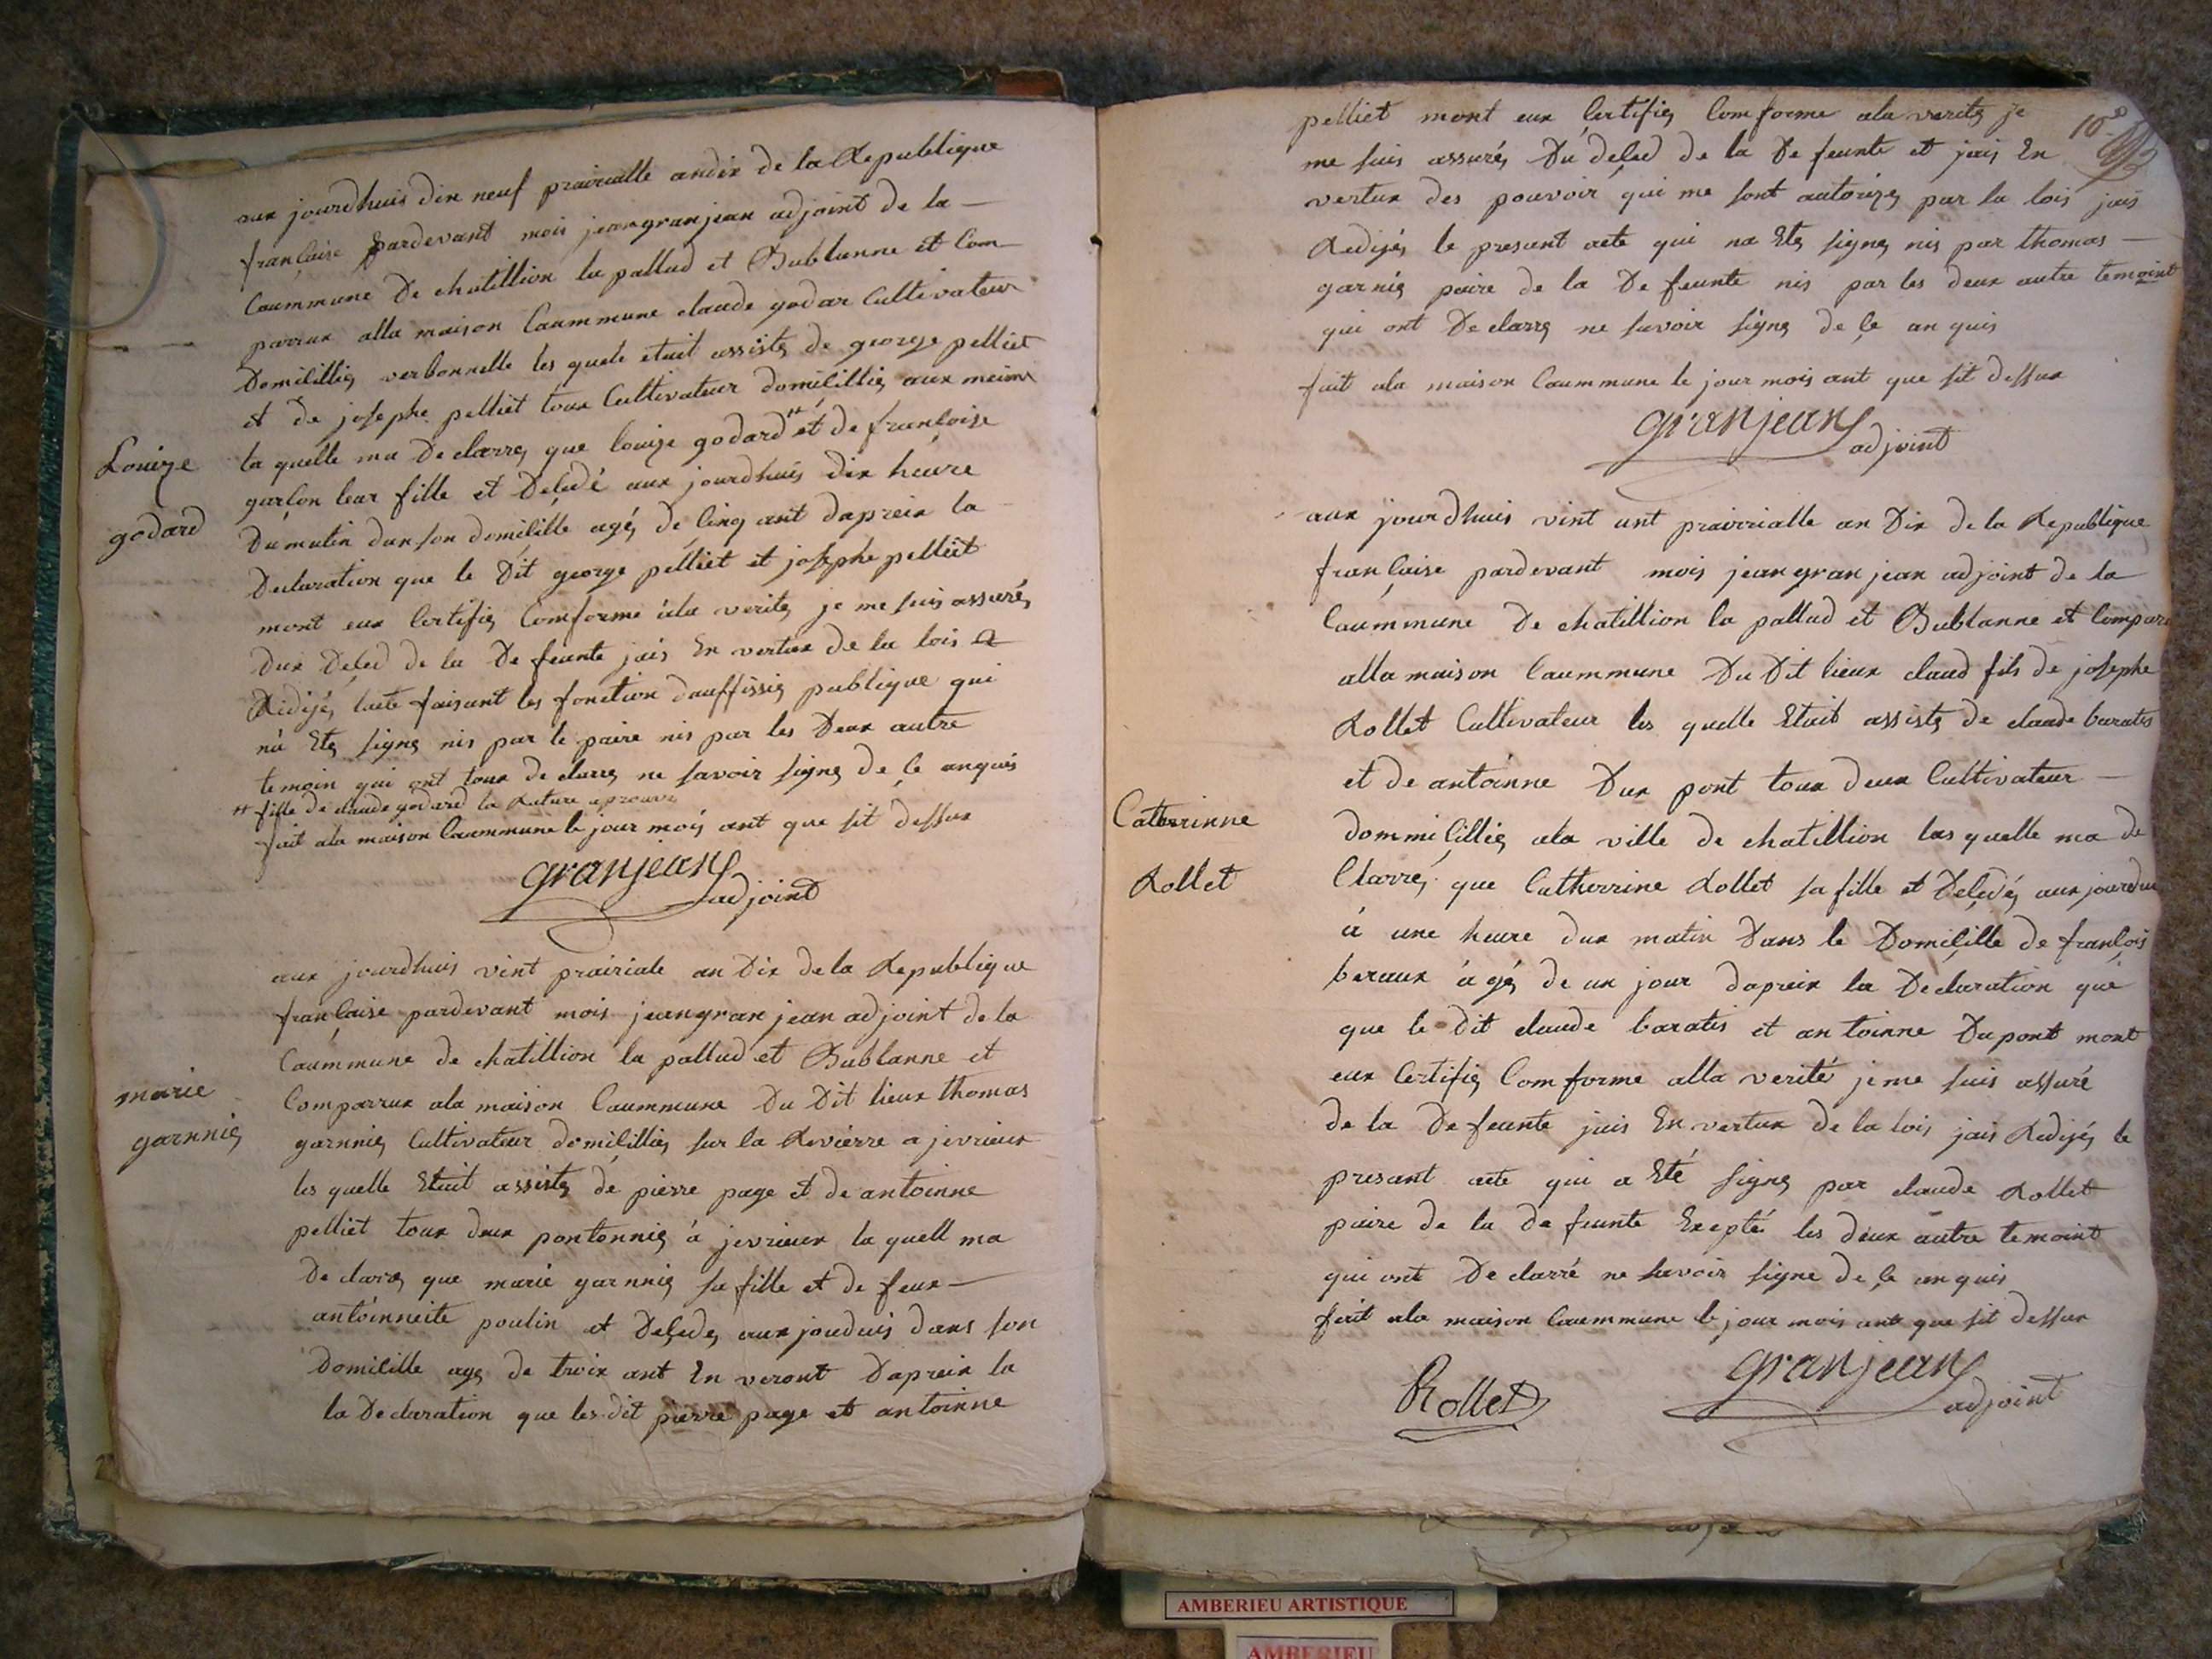 aux jourdhuis dix neuf prairialle andix de la Republique
française pardevant mois jeangranjean adjoint de la
Caummune De chatillion la pallud et Bublanne et Com
parrux alla maison Caummune claude godar Cultivateur
Domicillié verbonnelle les quele etait assisté de george pelliet
et de josephe pelliet toux Cultivateur domicillié aux meime
Louize
godard
la quelle ma Declarré que louize godard # et de françoise
garçon leur fille et Deçedé aux jourdhuis dix heure
Dumatin dan son domicille agé de Cinq ant dapreix la
Declaration que le Dit george pelliet et josephe pelliet
mont eux Certifié Comforme àla verité je me suis assuré
Dux Deçed de la Defeunte jais En vertux de la lois
Redijé lacte faisant les fonction dauffissié publique qui
nà Eté signé nis par le paire nis par les Deux autre
temoin qui ont toux declarré ne savoir signé de çe anquis
# fille de claude godard la Rature aprouvé
fait ala maison Caummune le jour mois ant que sit dessux
granjean
adjoint
aux jourdhuis vint prairiale an Dix de la Republique
française pardevant mois jeangranjean adjoint de la
Caummune de chatillion la pallud et Bublanne et
marie
garnnié
Comparrux ala maison Caummune Du Dit lieux thomas
garnnié Cultivateur domicillié sur la Rivierre a jevrieux
les quelle Etait assisté de pierre page et de antoinne
pelliet toux deux pontonnié à jevrieux la quell ma
Declaré que marie garnnié sa fille et de feux
antoinneite poulin et Deçedé aux jouduis dans son
Domicille agé de troix ant En veront Dapreix la
la Declaration que les dit pierre page et antoinne
10e
pelliet mont eux Certifié Comforme ala verité je
me suis assuré Du deçed de la Defeunte et jais En
vertux des pouvoir qui me sont autorizé par la lois jais
Redijé le presant acte qui na Eté signé nis par thomas
garnié paire de la Defeunte nis par les deux autre temoint
qui ont Declarré ne savoir signé de çe anquis
fait ala maison Caummune le jour mois ant que sit dessux
granjean
adjoint
aux jourdhuis vint unt prairrialle an Dix de la Republique
française pardevant mois jeangranjean adjoint de la
Caummune De chatillion la pallud et Bublanne et Comparu
alla maison Caummune Du Dit lieux claud fils de josephe
Rollet Cultivateur les quelle Etait assisté de claude baratis
et de antoinne Dux pont toux deux Cultivateur
Catherinne
Rollet
dommiçillié ala ville de chatillion las quelle ma de
Clarré que Catherrine Rollet sa fille et Deçedé aux jourdu
à une heure dux matin Dans le Domicille de françois
beraux àgé de un jour dapreix la Declaration que
que le Dit claude baratis et antoinne Dupont mont
eux Certifié Comforme alla verité jeme suis assuré
de la Defeunte jais En vertux de la lois jais Redijé le
presant acte qui a Eté signé par claude Rollet
paire de la defeunte Exepté les deux autre temoint
qui ont Declarré ne savoir signe de çe anquis
fait ala maison Caummune le jour mois ant que sit dessux
Rollet
granjean
adjoint
AMBERIEU ARTISTIQUE
AMBERIEU